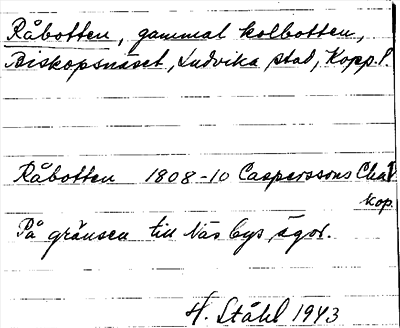 Råbotten, gammal kolbotten,
Biskopsnäset, Ludvika stad, Kopp. l.
Råbotten 1808-10 Casperssons
kop.
På gränsen till Näs bys ägor.
H. Ståhl 1943